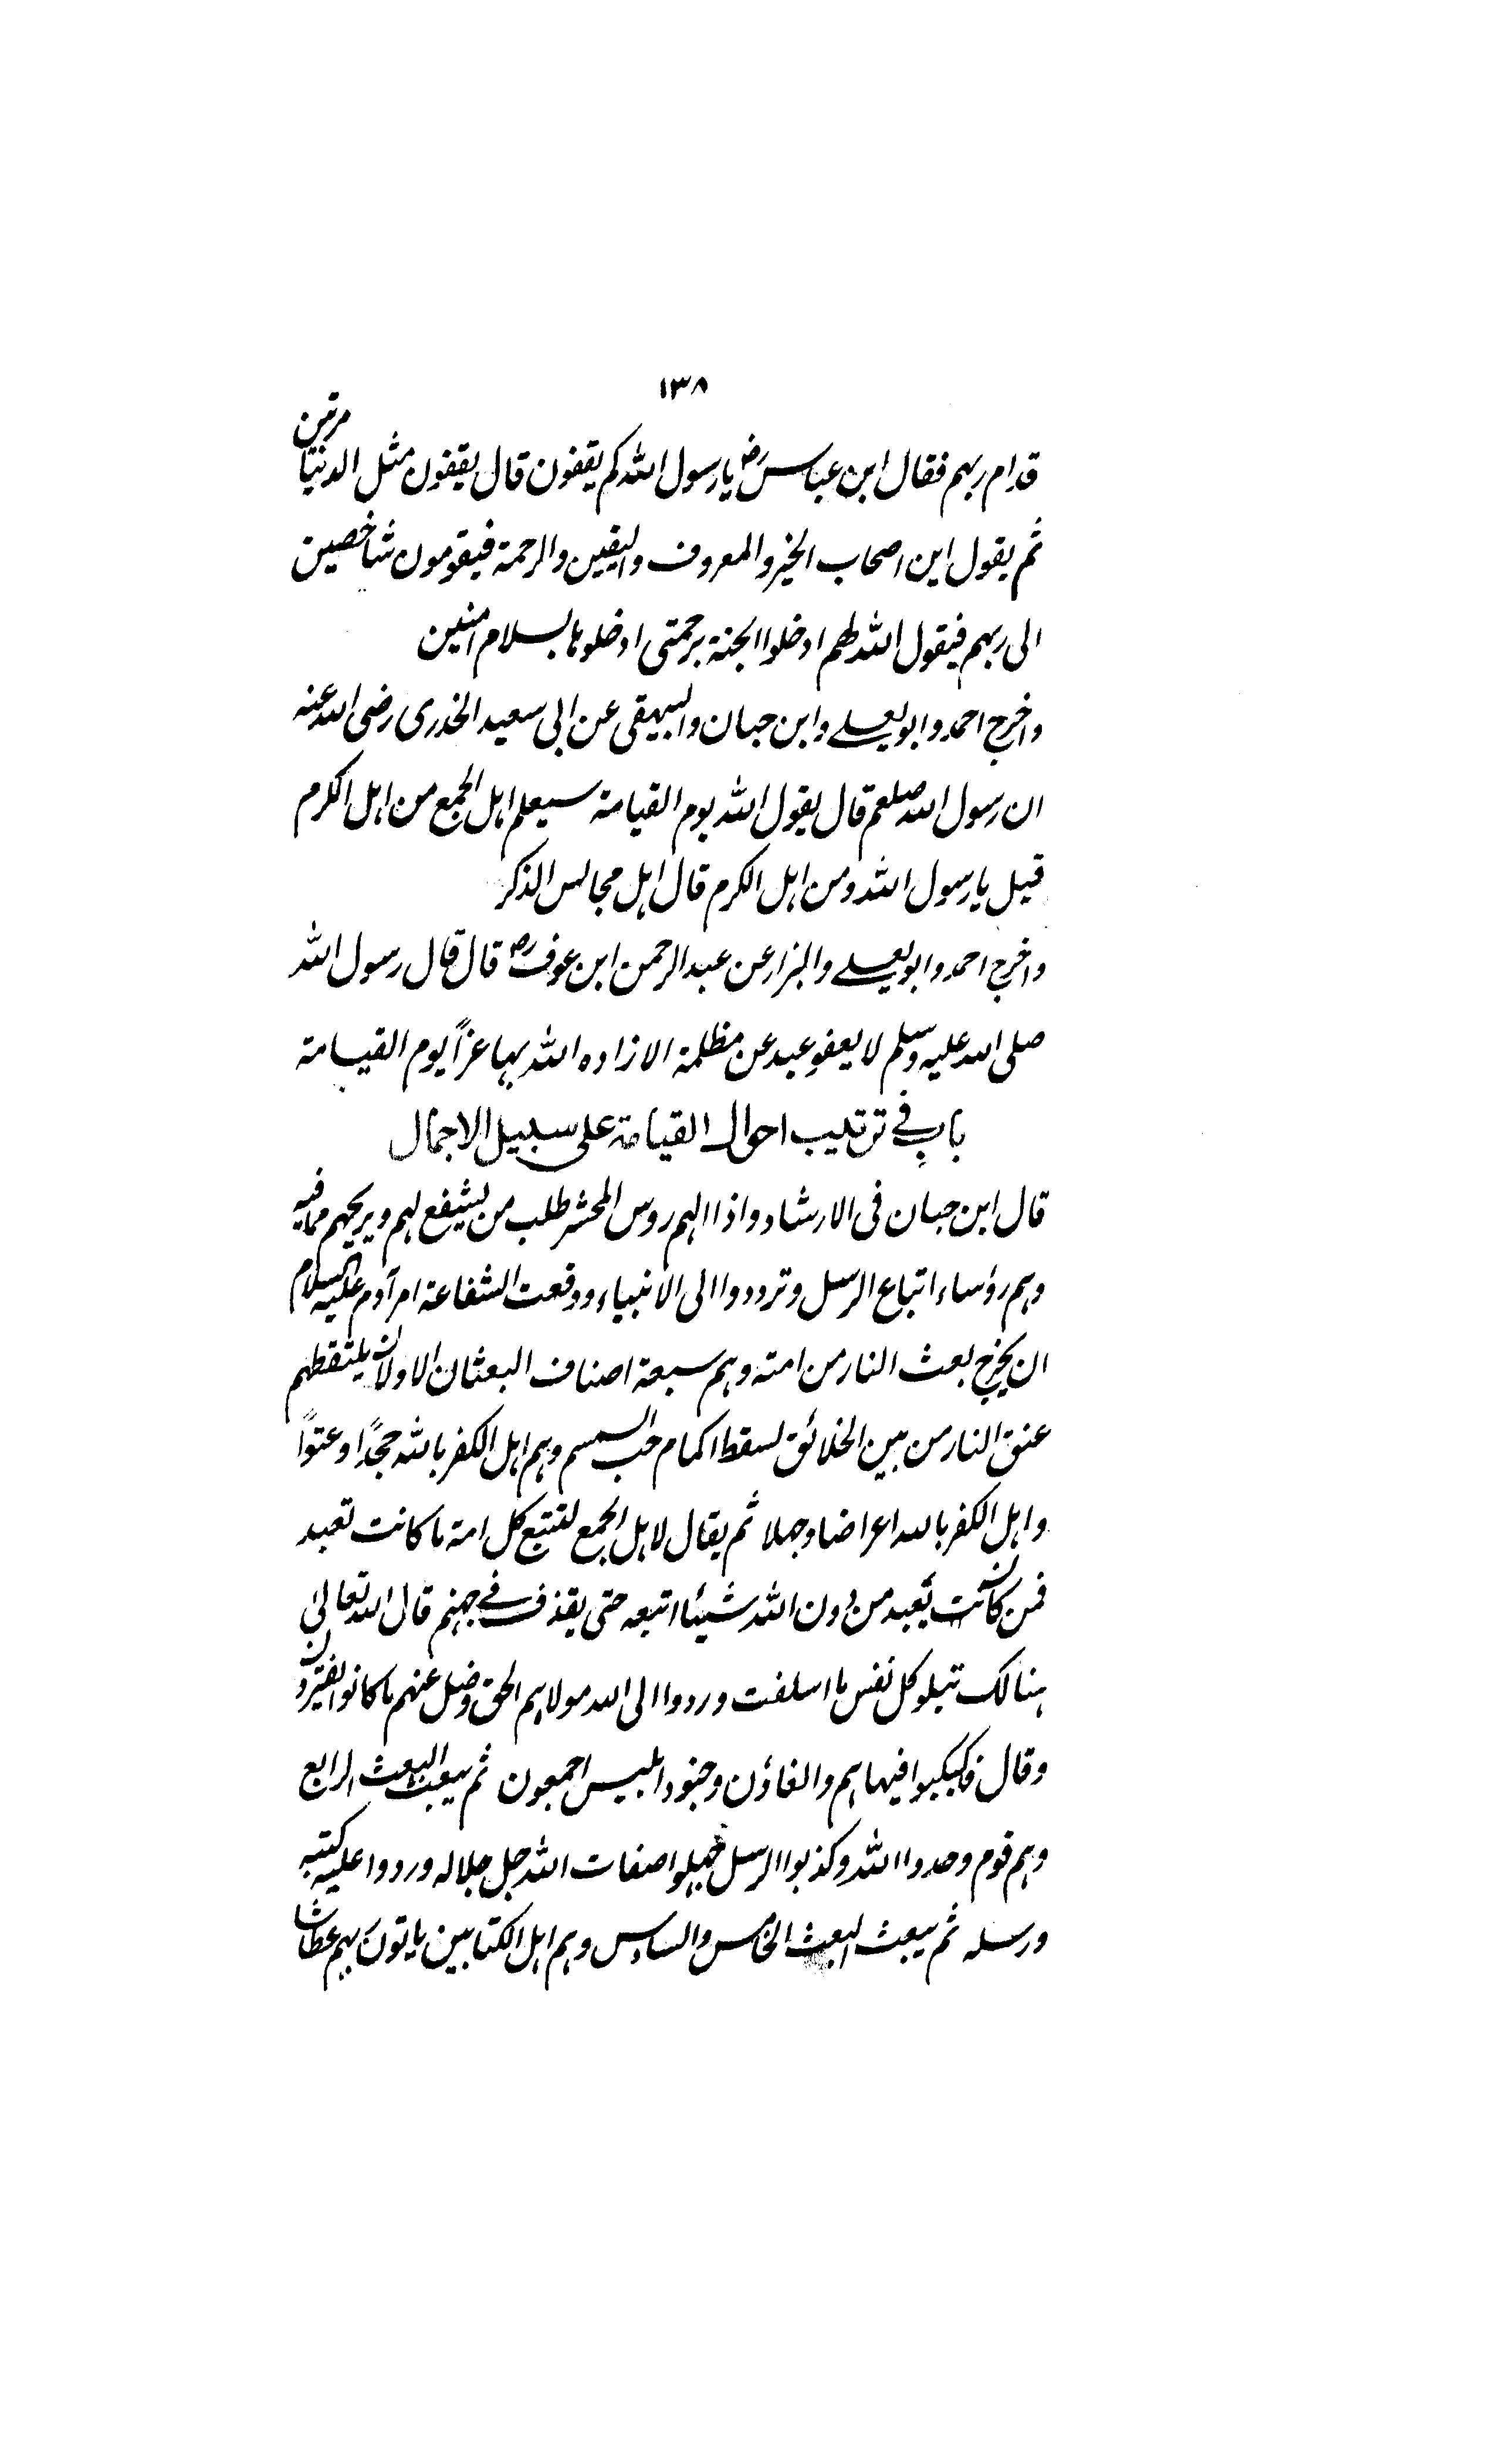 ۱۳۸
قدام ربهم فقال ابن عباس رض يا رسول الله كم يقفون قال يقفون مثل الدنيا مرتين
ثم يقول اين اصحاب الخير والمعروف واليقين والرحمة فيقومون شاخصين
الى ربهم فيقول الله لهم ادخلوا الجنة برحمتى ادخلوها بسلام امنين
واخرج احمد وابو يعلے وابن حبان والبيهقى عن ابى سعيد الخدرى رضى الله عنه
ان رسول الله صلعم قال يقول الله يوم القيامة سيعلم اهل الجمع من اهل الكرم
قيل يا رسول الله ومن اهل الكرم قال اهل مجالس الذكر
واخرج احمد وابو يعلے والبزار عن عبد الرحمن ابن عوف رض قال قال رسول الله
صلى الله عليه وسلم لا يعفو عبد عن مظلمة الا زاده الله بها عزاً يوم القيامة
باب فے ترتيب احوال القيامة على سبيل الاجمال
قال ابن حبان فى الارشاد واذا الهم روس المحشر طلب من يشفع لهم ويريحهم مما فيه
وهم رؤساء اتباع الرسل وترددوا الى الانبياء ووقعت الشفاعة امر آدم عليه السلام
ان يخرج بعث النار من امته وهم سبعة اصناف البعثان الاولان يلتقطهم
عنق النار من بين الخلائق لسقط اكمام حب السمسم وهم اهل الكفر بالله جحدًا وعتواً
واهل الكفر بالله اعراضا وجهلا ثم يقال لاهل الجمع لتتبع كل امة ما كانت تعبد
فمن كانت يعبد من دون الله شيئا اتبعه حتى يقذف فے جهنم قال الله تعالى
هنالك تبلو كل نفس ما اسلفت وردوا الى الله مولاهم الحق وضل عنهم ما كانوا يفترون
وقال فكبكبوا فيها هم والغاؤن وجنود ابليس اجمعون ثم يبعث البعث الرابع
وهم قوم وحدوا الله وكذبوا الرسل جهلوا صفات الله جل جلاله وردوا عليه كتبه
ورسله ثم يبعث البعث الخامس والسادس وهم اهل الكتابين ياتون ربهم عطاشا